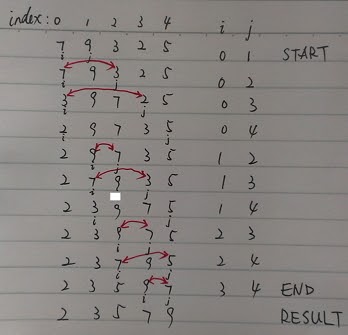 index: 0 1 2 3 4 i j
7 9 3 2 5 0 1 START
i j
7 9 3 2 5 0 2
i j
3 9 7 2 5 0 3
i j
2 9 7 3 5 0 4
i j
2 9 7 3 5 1 2
i j
2 7 9 3 5 1 3
i j
2 3 9 7 5 1 4
i j
2 3 9 7 5 2 3
i j
2 3 7 9 5 2 4
i j
2 3 5 9 7 3 4 END
i j
2 3 5 7 9 RESULT